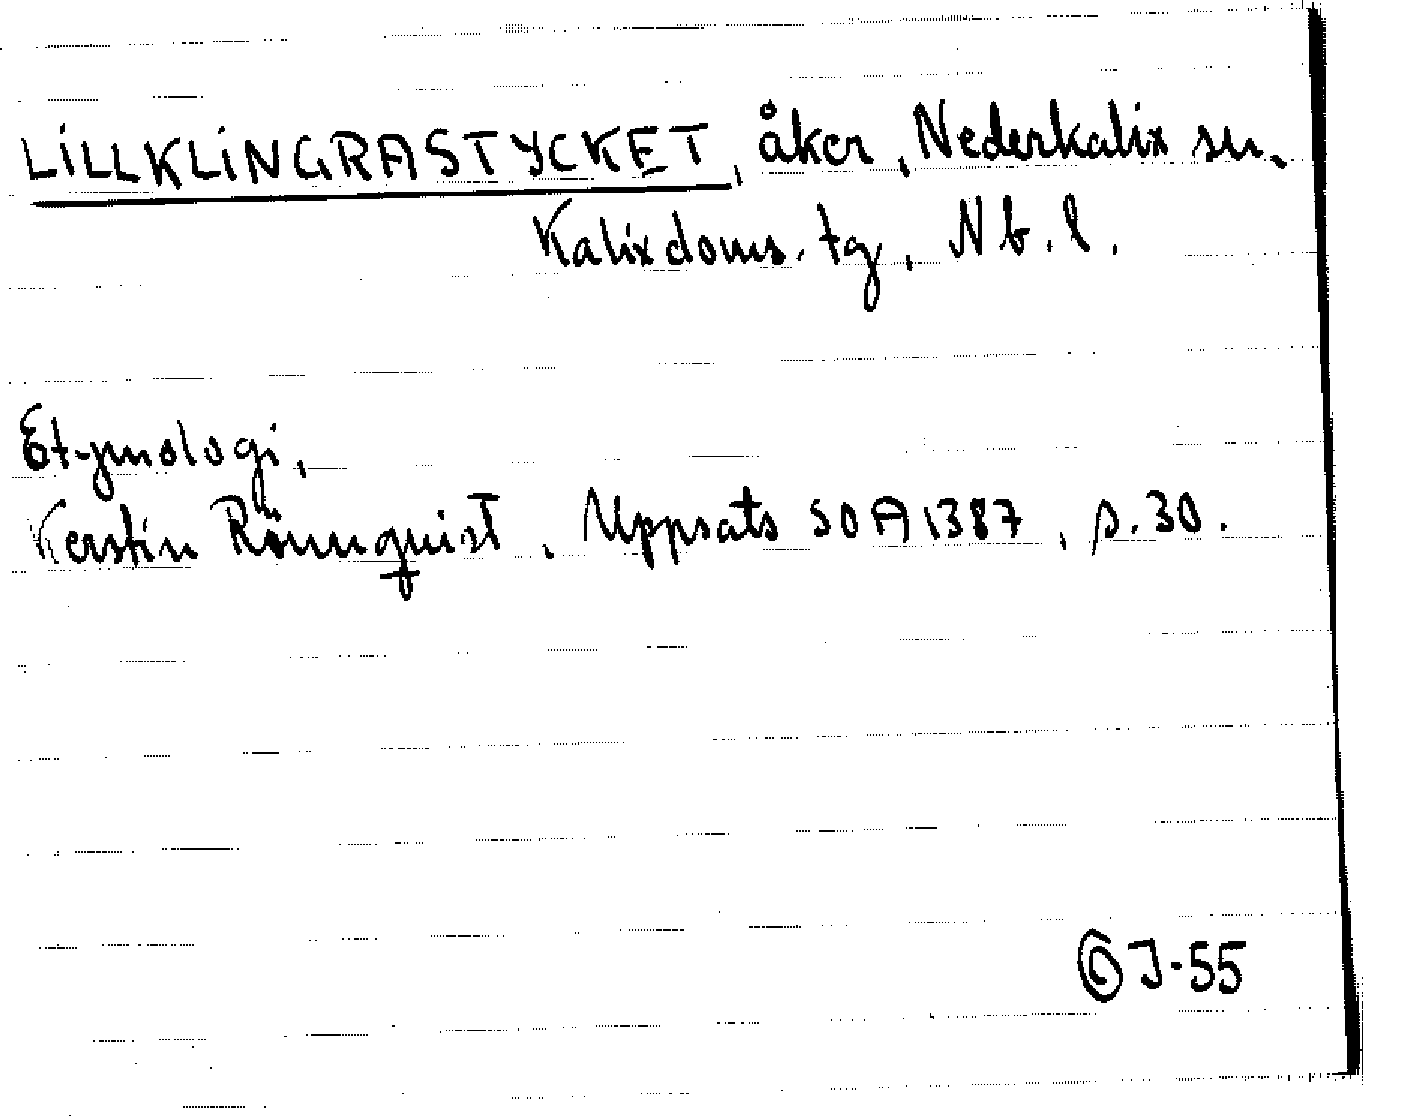 LILLKLINGRASTYCKET, åker, Nederkalix sn.
Kalix doms. tg, Nb. l.
Etymologi,
Kerstin Rönnquist, Uppsats SOA 1387, s. 30.
J-55